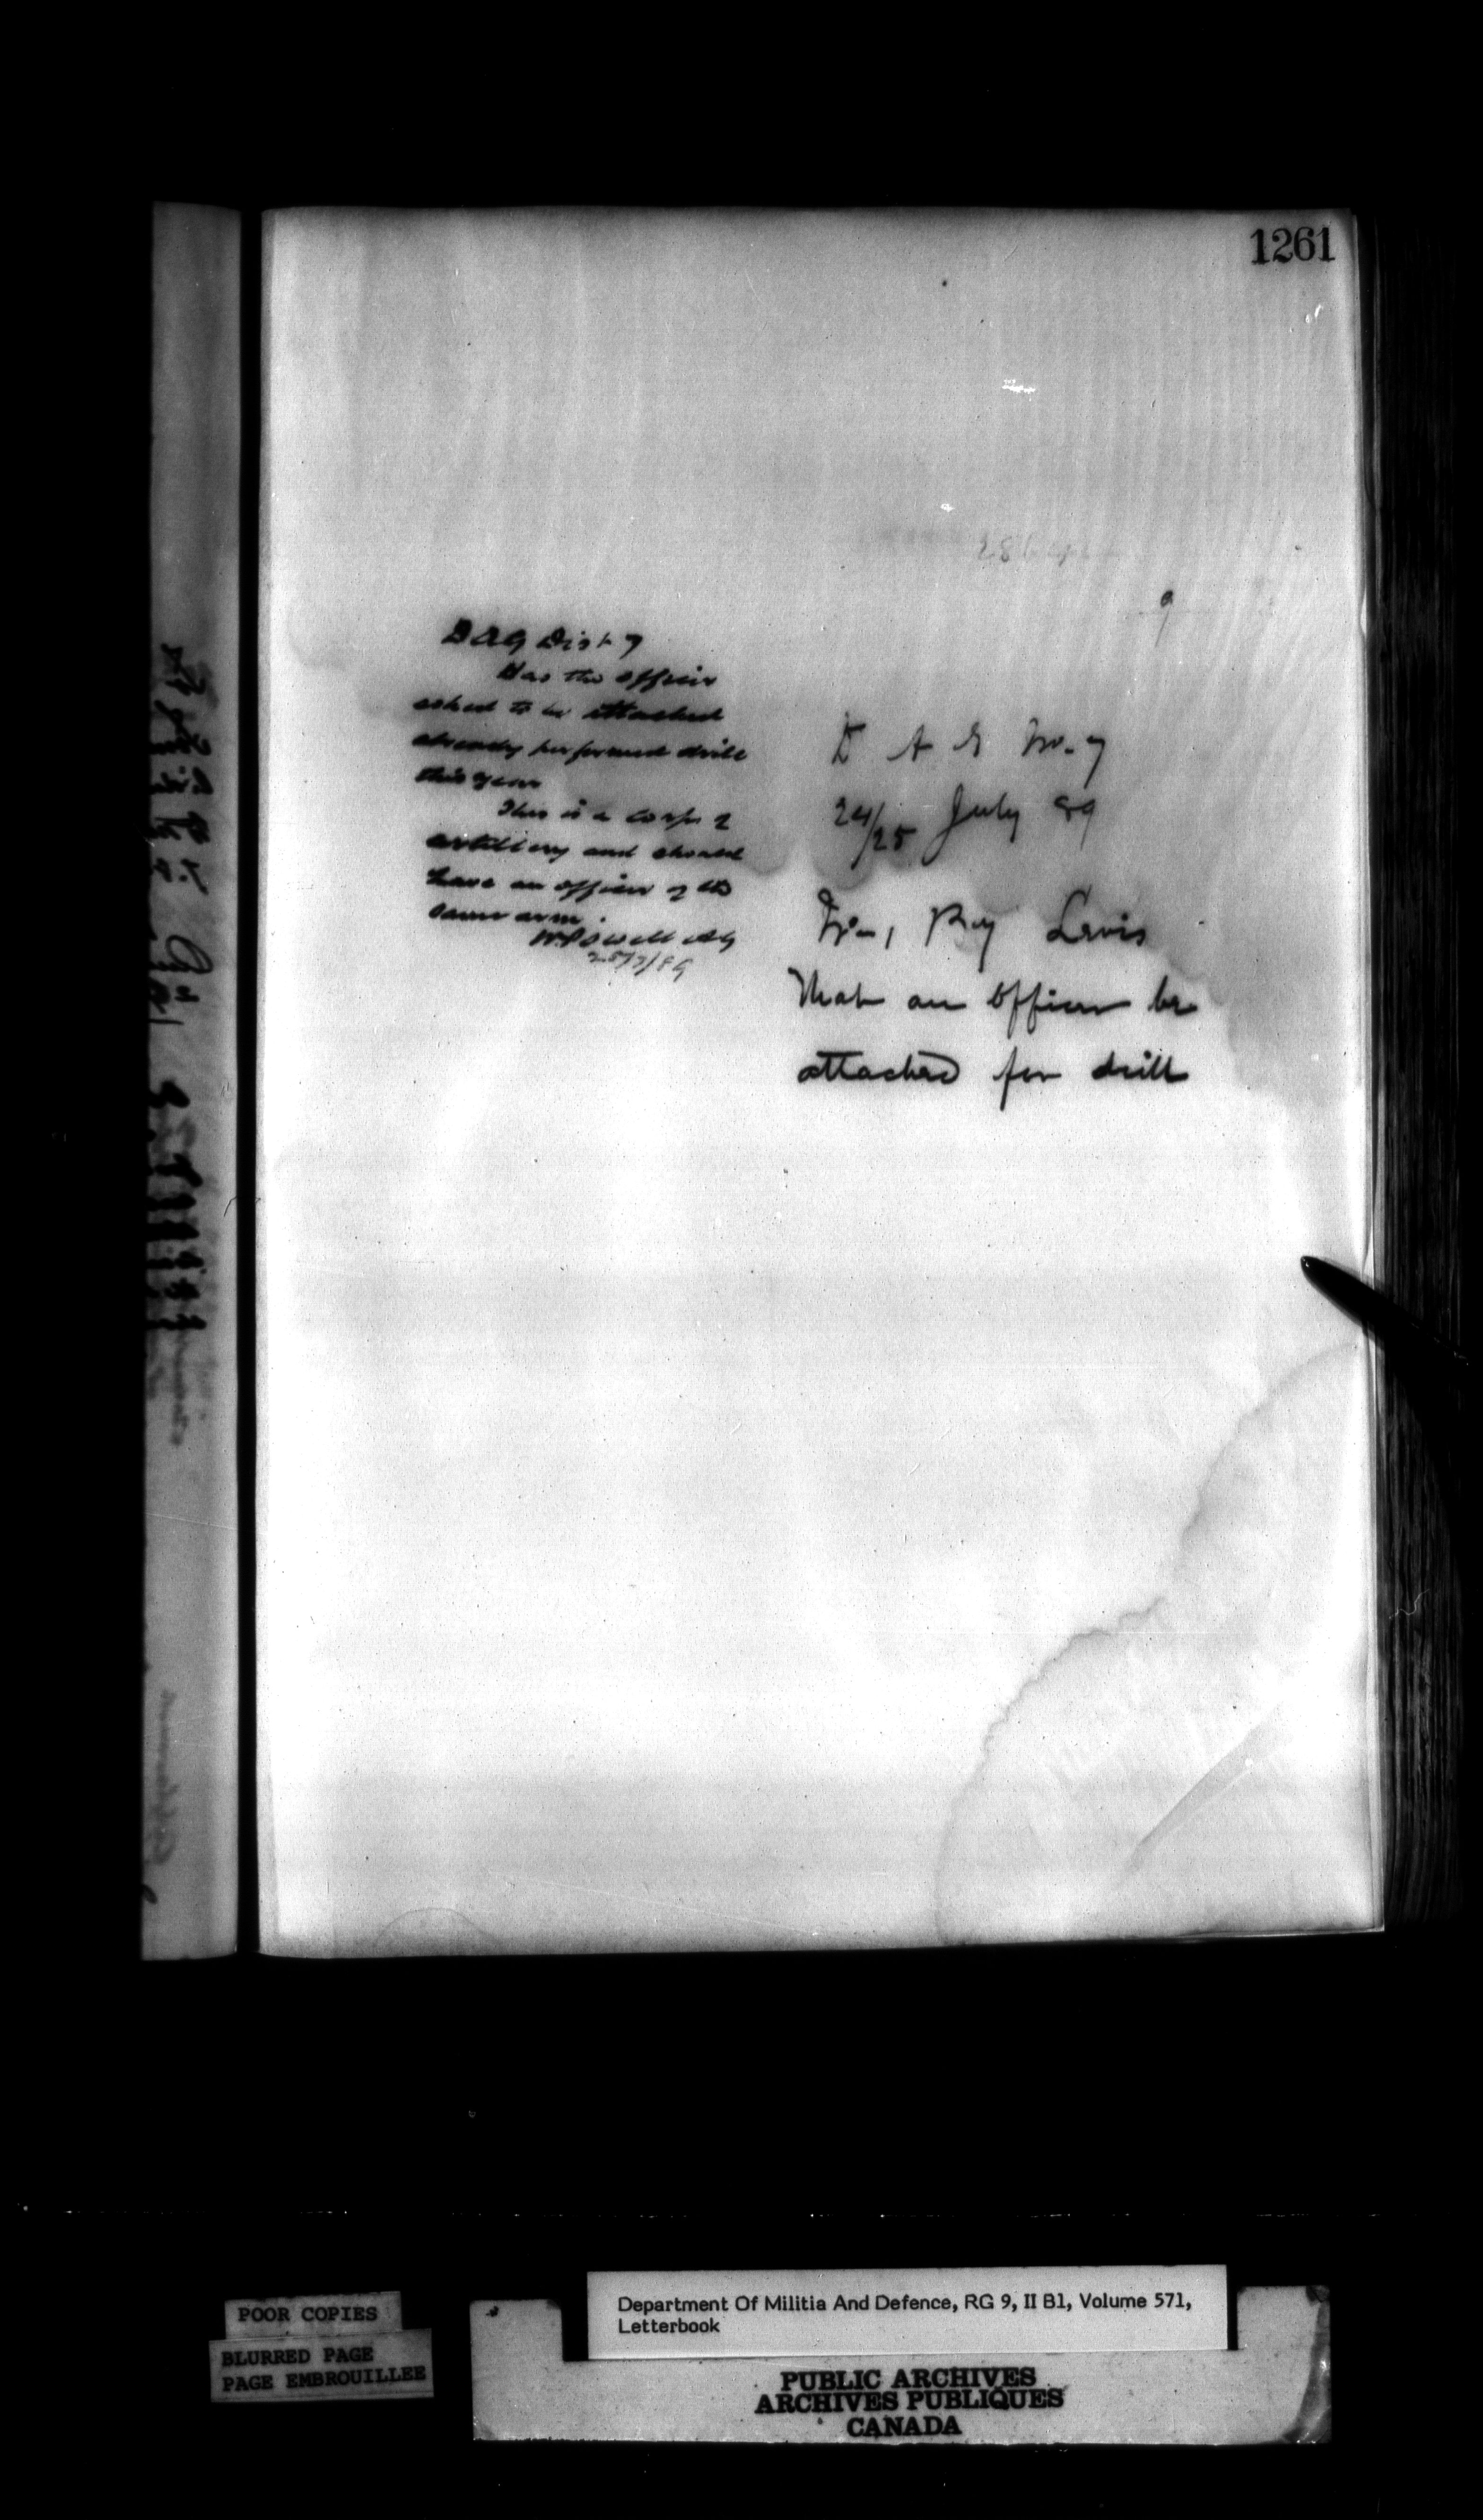 1261
9
D A G Dist 7
Has the officer
asked to be attached
already performed drill
this year
This is a corps of
artillery and should
have an officer of the
same arm.
W Powell AG
25/7/89
D A G No. 7
24/25 July 89
No. 1 Levis
That an officer be
attached for drill
POOR COPIES
BLURRED PAGE
PAGE EMBROUILLEE
Department Of Militia And Defence, RG 9, II B1, Volume 571,
Letterbook
PUBLIC ARCHIVES
ARCHIVES PUBLIQUES
CANADA